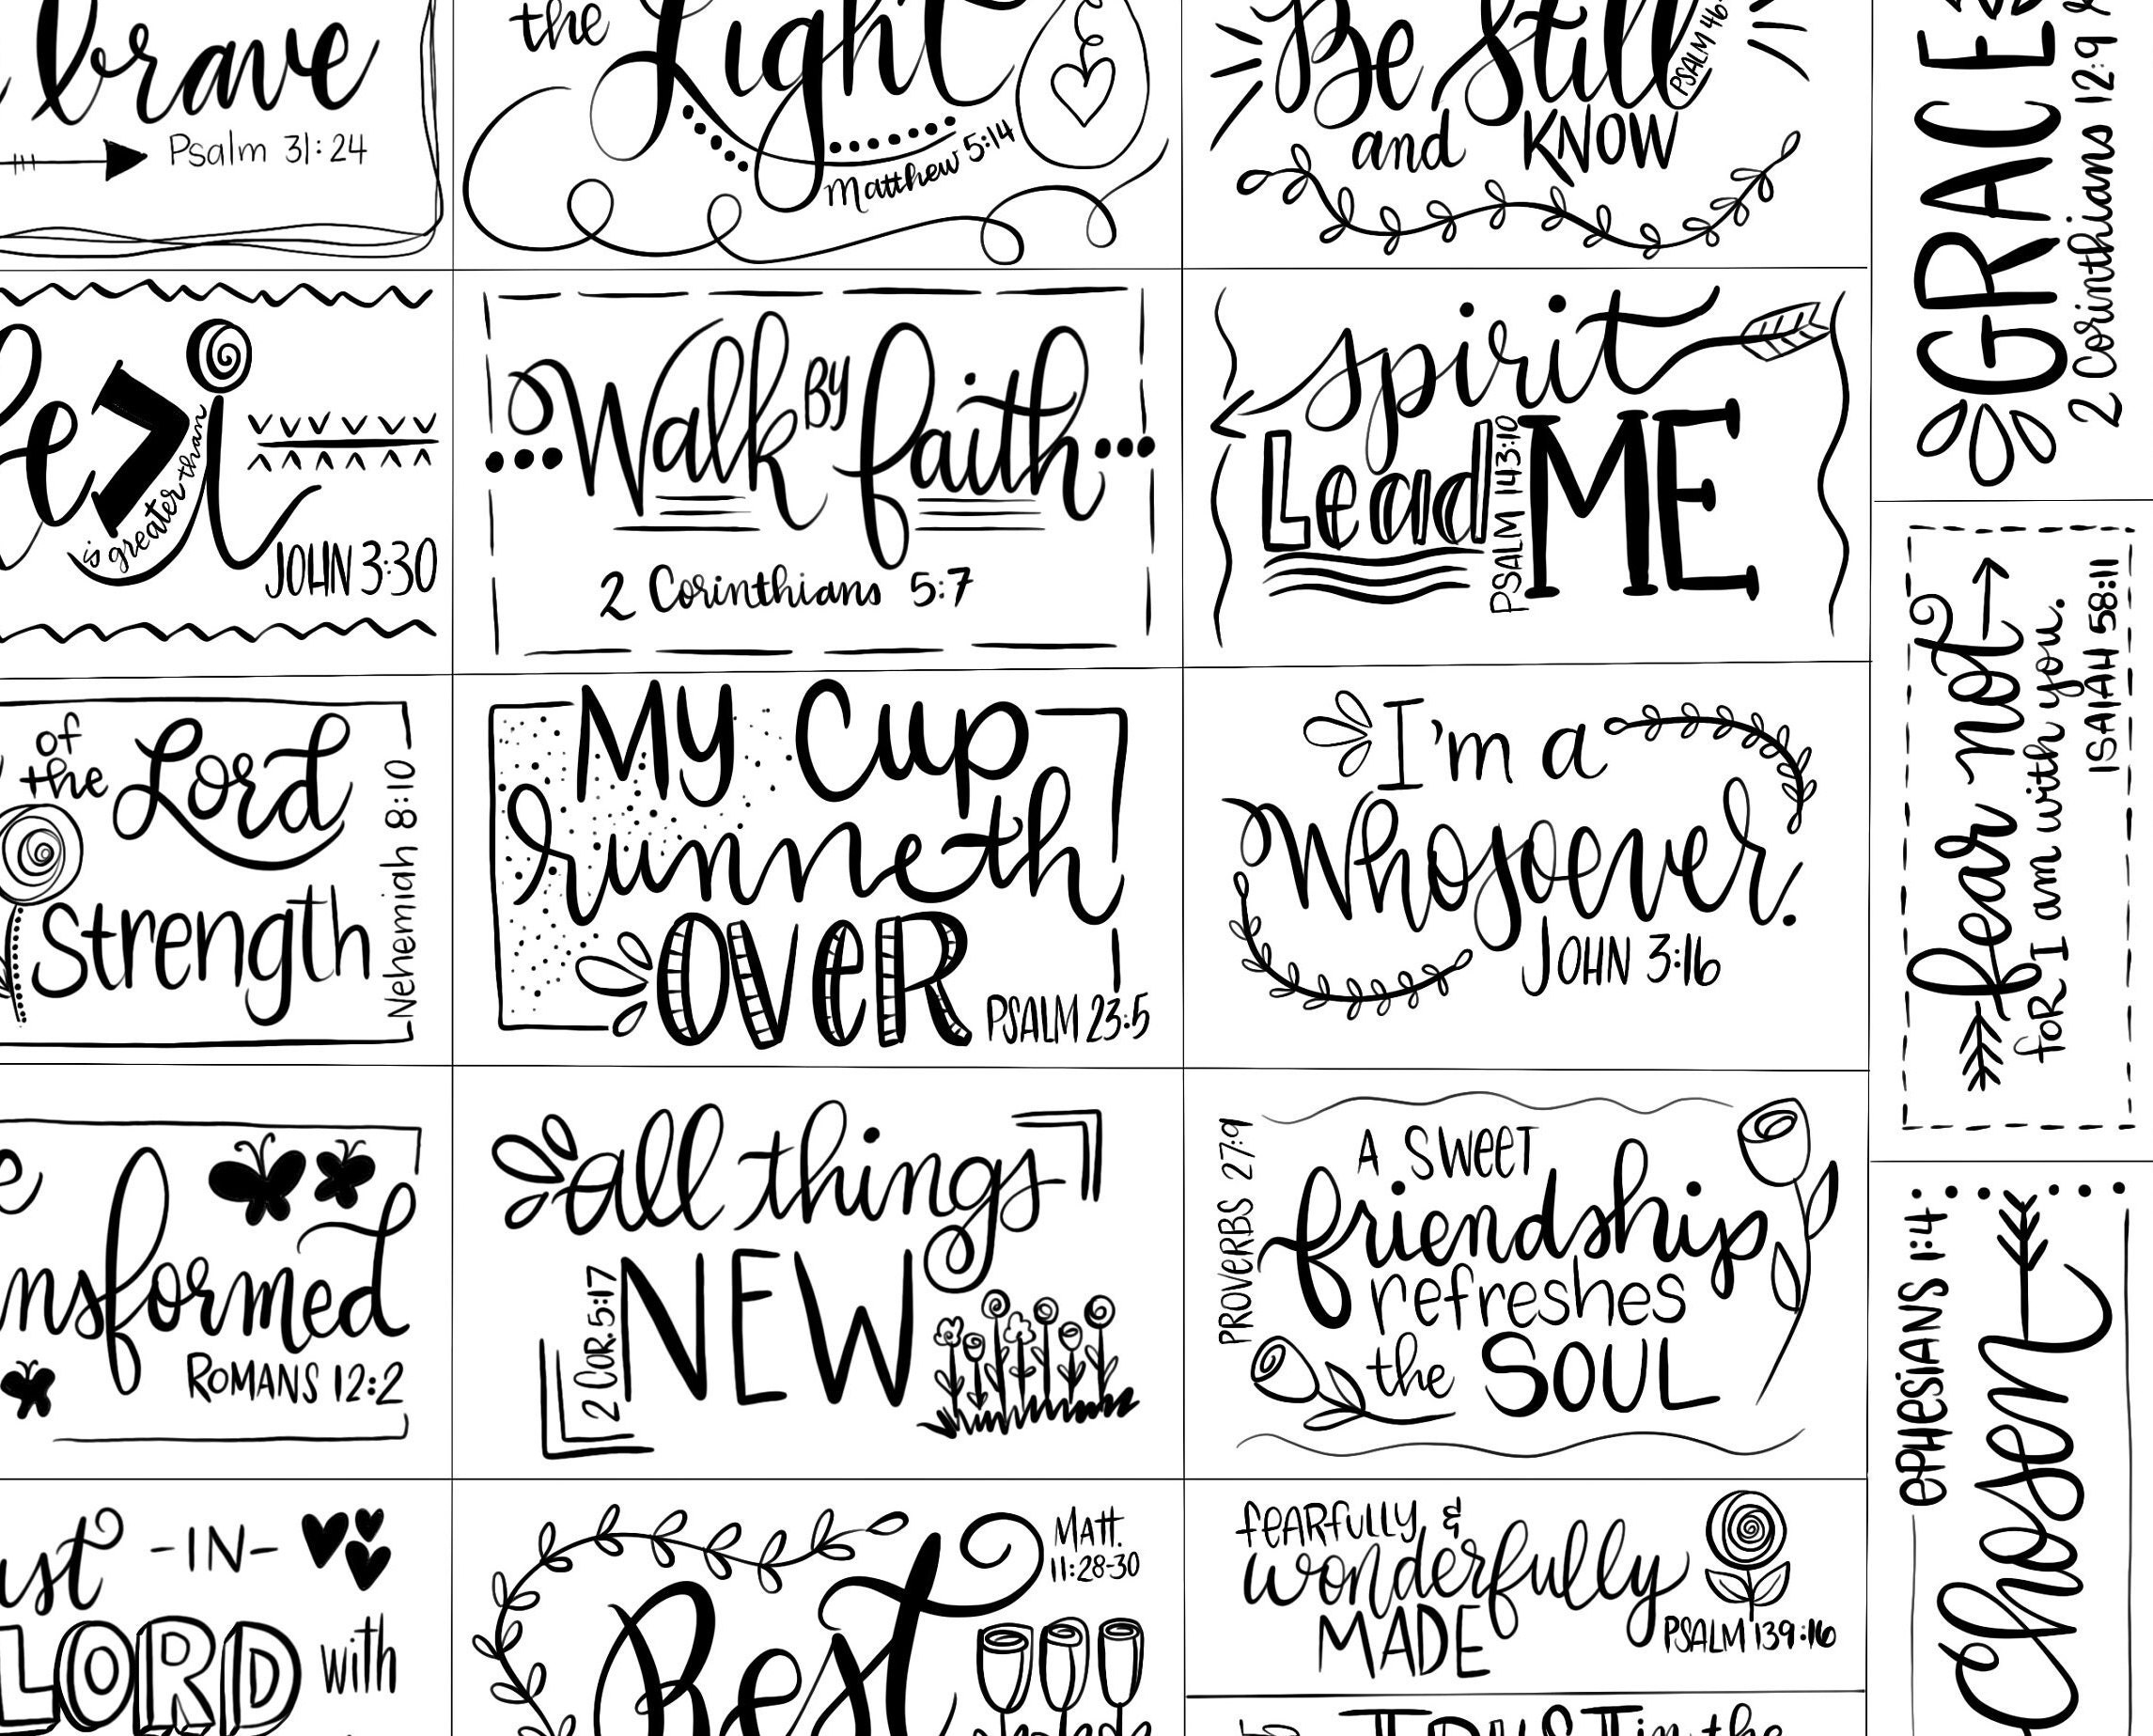 brave
Psalm 31:24
the
Light
Matthew 5:14
Be Still
PSALM 46:
and KNOW
GRACE
2 Corinthians 12:9
He > i
is greater than
JOHN 3:30
Walk BY faith
2 Corinthians 5:7
spirit
Lead ME
PSALM 143:10
fear not
foR I am with you.
ISAIAH 58:11
of
the Lord
Strength
Nehemiah 8:10
MY Cup
runneth
OVeR
PSALM 23:5
I'm a
Whosoever.
JOHN 3:16
nsformed
ROMANS 12:2
all things
NEW
2 COR. 5:17
PROVERBS 27:9
A SWEET
friendship
refreshes
the SOUL
ePHESIANS 1:4
Chosen
ust -IN-
LORD with
MATT.
11:28-30
Rest
feARfully &
wonderfully
MADE
PSALM 139:16
TRUST in the